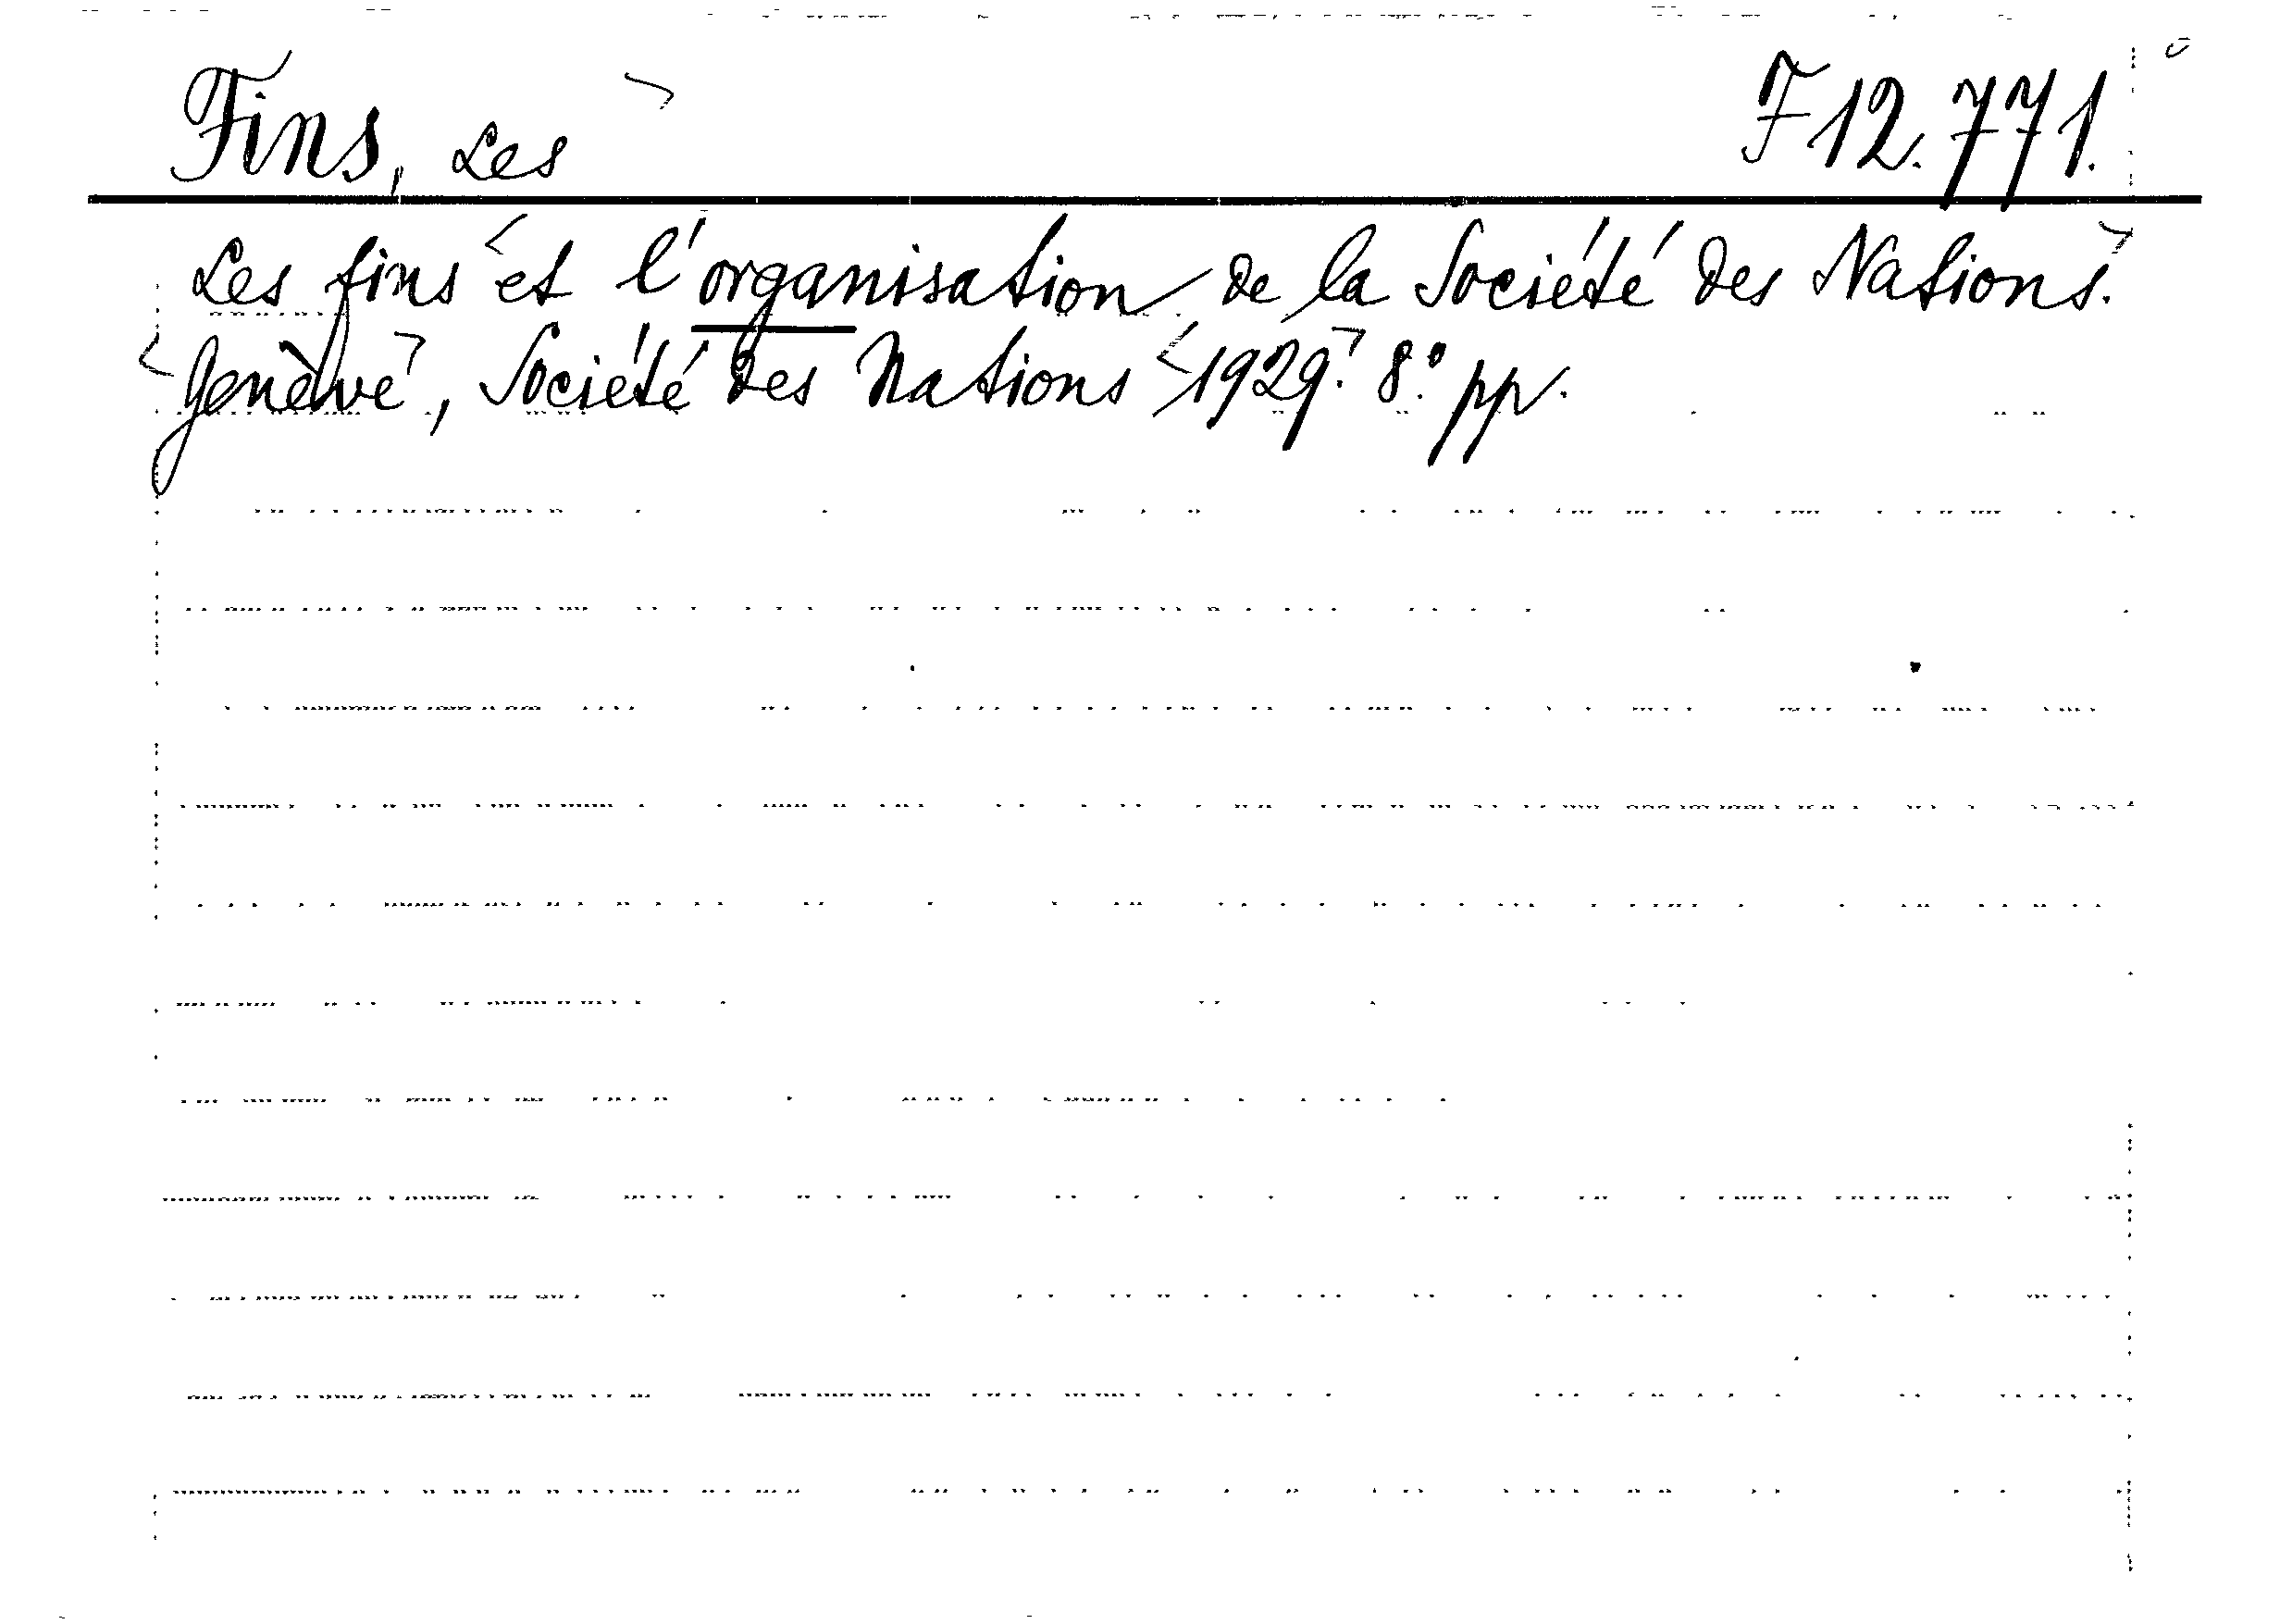 Fins, Les F 12.771.
Les fins et l'organisation de la Société des Nations.
Genève, Société des Nations 1929. 8° pp.